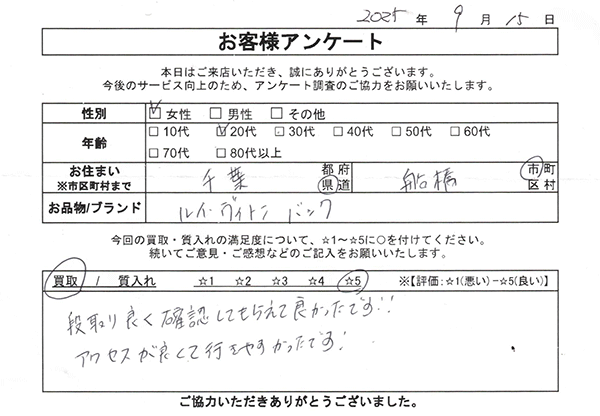 2025 年 9 月 15 日
お客様アンケート
本日はご来店いただき、誠にありがとうございます。
今後のサービス向上のため、アンケート調査のご協力をお願いいたします。
性別 ☑ 女性 □ 男性 □ その他
年齢 □ 10代 ☑ 20代 □ 30代 □ 40代 □ 50代 □ 60代
□ 70代 □ 80代以上
お住まい ※市区町村まで 千葉 都府県道 船橋 市町区村
お品物/ブランド ルイ・ヴィトン バック
今回の買取・質入れの満足度について、☆1～☆5に○を付けてください。
続いてご意見・ご感想などのご記入をお願いいたします。
買取 / 質入れ ☆1 ☆2 ☆3 ☆4 ☆5 ※【評価:☆1(悪い)−☆5(良い)】
段取り良く確認してもらえて良かったです!!
アクセスが良くて行きやすかったです!
ご協力いただきありがとうございました。